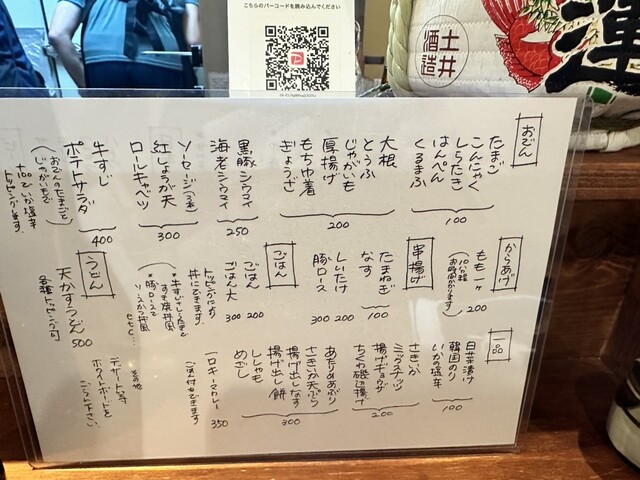 こちらのバーコードを読み込んでください
土井酒造
運
おでん
たまご
こんにゃく
しらたき
はんぺん
くるまふ
100
大根
とうふ
じゃがいも
厚揚げ
もち巾着
ぎょうざ
200
黒豚シウマイ
海老シウマイ
250
ソーセージ(3本)
紅しょうが天
ロールキャベツ
300
牛すじ
ポテトサラダ
400
(おでんのたまごと
じゃがいもを
+100でいか塩辛
トッピングできます
からあげ
もも一ヶ 200
(10分程
お時間かかります)
串揚げ
たまねぎ
なす
100
しいたけ 200
豚ロース 300
ごはん
ごはん 200
ごはん大 300
トッピングにより
丼にできます
*牛すじ+しらたきで
すき焼丼風
*豚ロースで
ソースかつ丼風
etc…
うどん
天かすうどん 500
各種トッピング可
一品
白菜漬け
韓国のり
いかの塩辛
100
さきいか
ミックスナッツ
揚げギョウザ
ちくわ磯辺揚げ
200
あたりめあぶり
さきいか天ぷら
揚げ出しなす
揚げ出し餅
ししゃも
めざし
300
一口キーマカレー 350
ごはん付もできます
その他
デザート等
ホワイトボードを
ごらん下さい